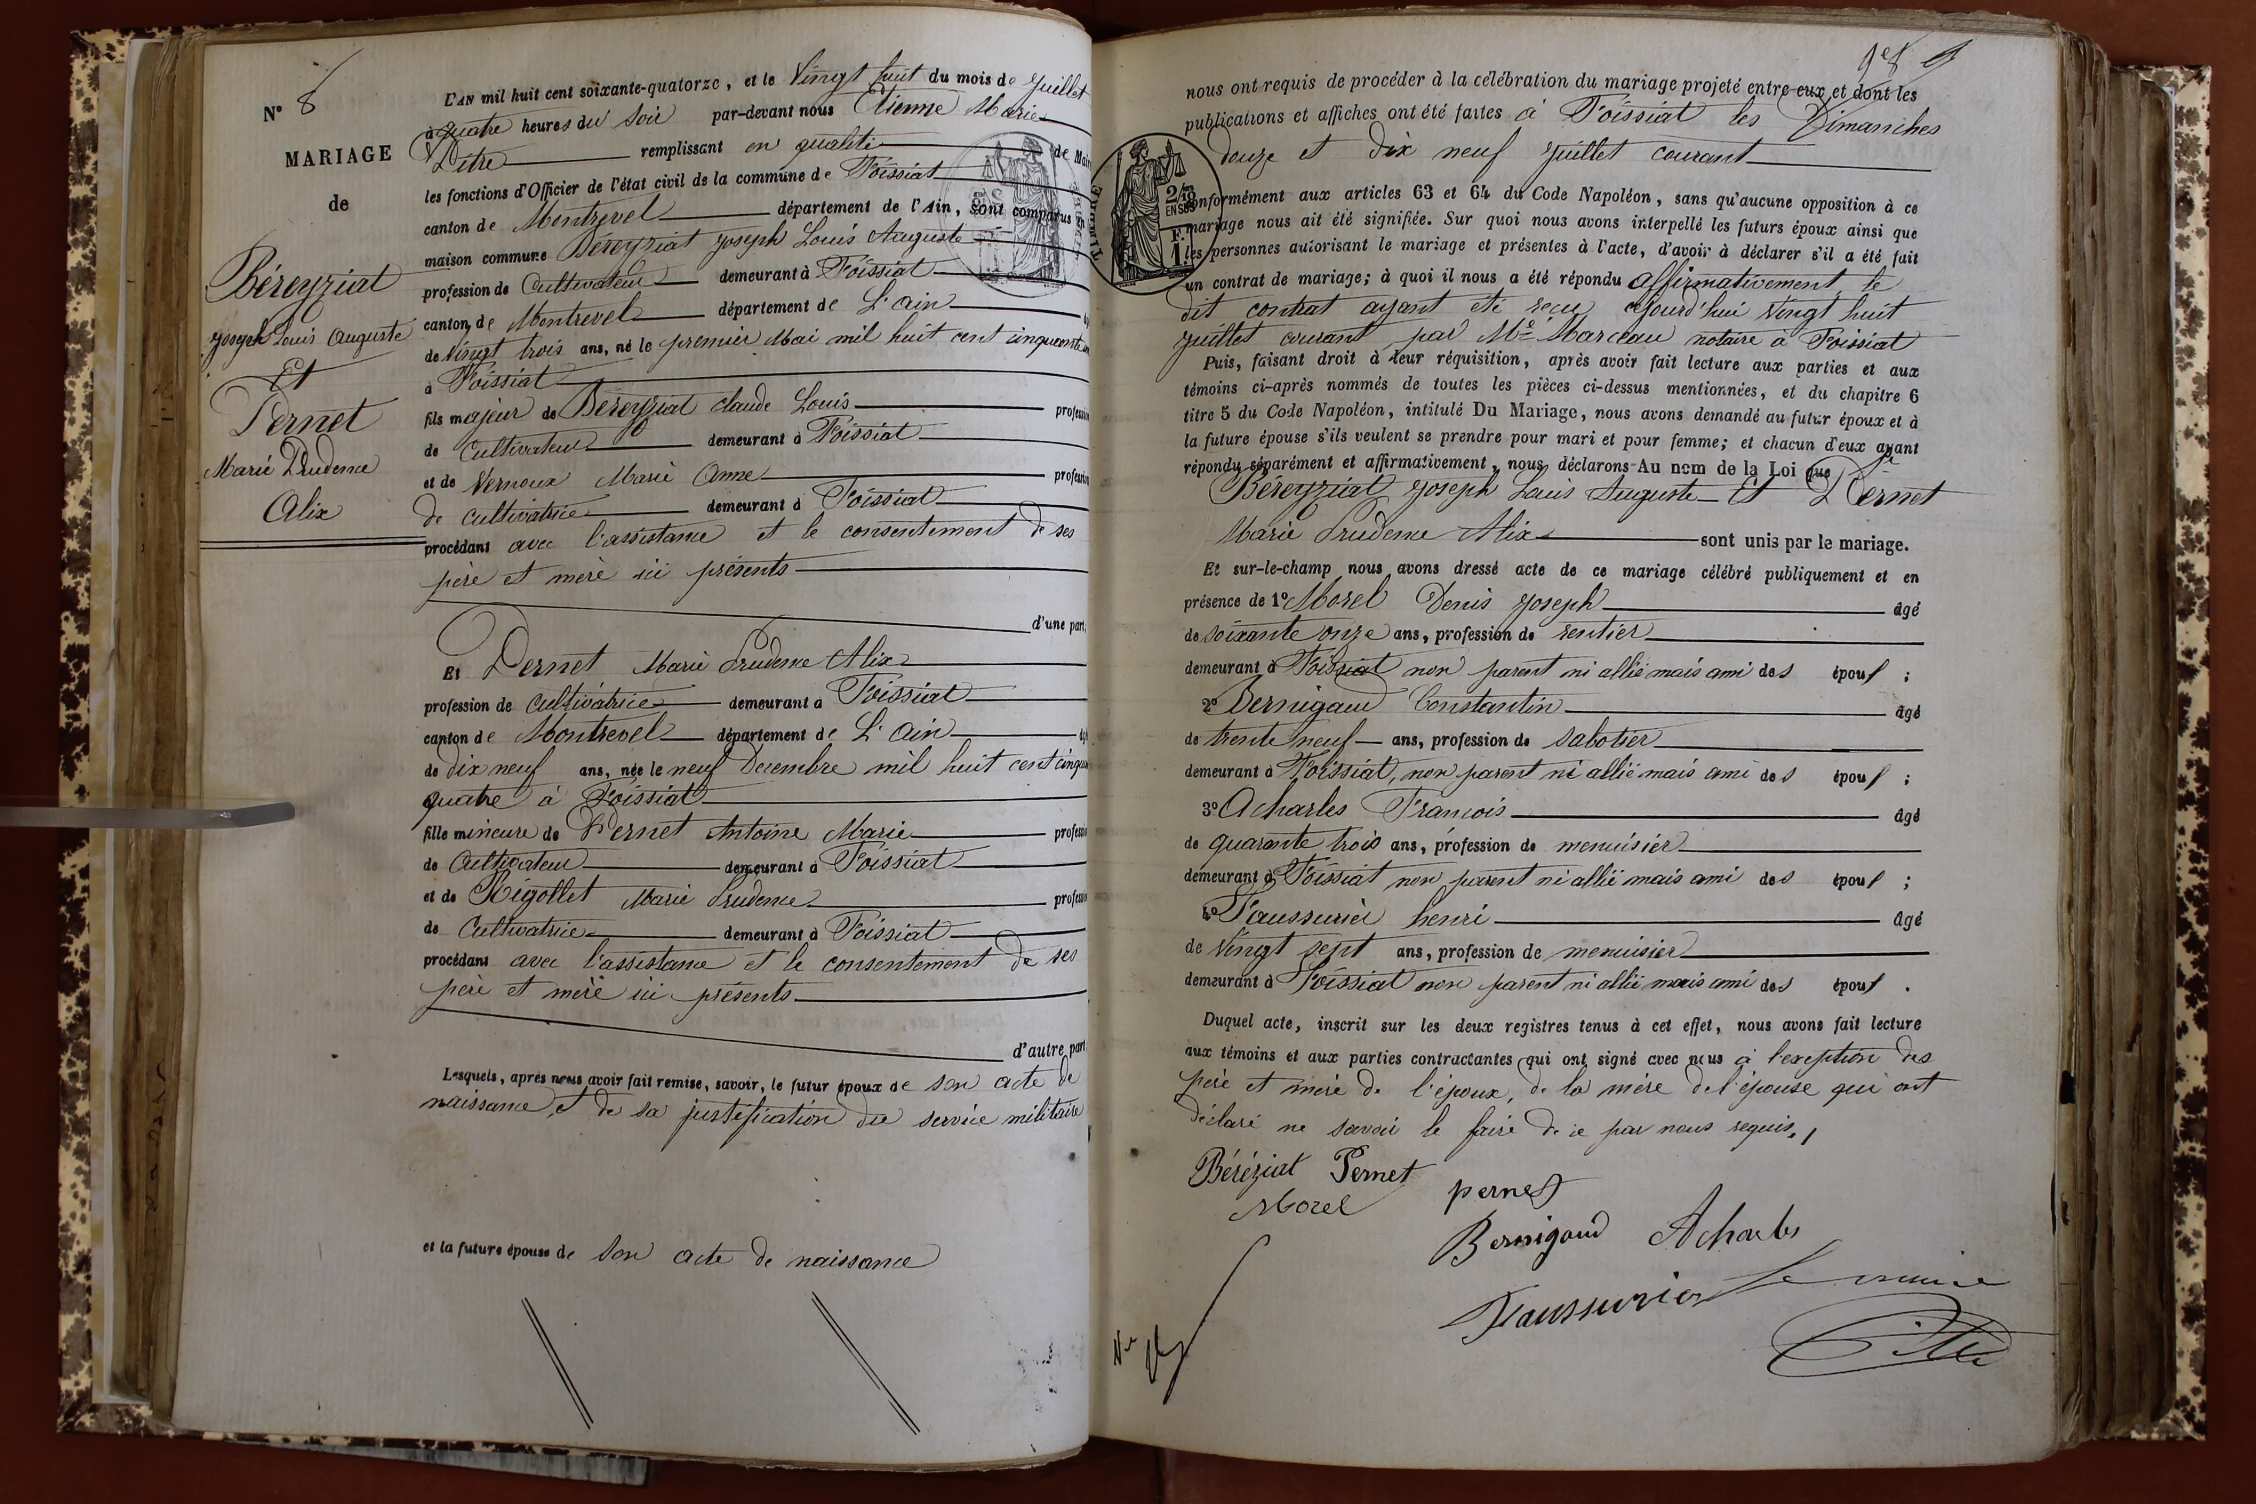 N° 8
MARIAGE
de
Béreyziat
Joseph Louis Auguste
Et
Pernet
Marie Prudence
Alix
L'AN mil huit cent soixante-quatorze, et le Vingt huit du mois de Juillet
à quatre heures du Soir par-devant nous Etienne Marie
Pitre remplissant en qualité de Mair
les fonctions d'Officier de l'état civil de la commune de Foissiat
canton de Montrevel département de l'Ain, sont comparus en
maison commune Béreyziat Joseph Louis Auguste
profession de Cultivateur demeurant à Foissiat
canton de Montrevel département de L'ain
de Vingt trois ans, né le premier Mai mil huit cent cinquante un
à Foissiat
fils majeur de Béreyziat Claude Louis profession
de Cultivateur demeurant à Foissiat
et de Vernoux Marie Anne profession
de cultivatrice demeurant à Foissiat
procédant avec l'assistance et le consentement de ses
père et mère ici présents
d'une part,
Et Pernet Marie Prudence Alix
profession de cultivatrice demeurant à Foissiat
canton de Montrevel département de L'ain
de dix neuf ans, née le neuf Décembre mil huit cent cinqu
quatre à Foissiat
fille mineure de Pernet Antoine Marie profess
de Cultivateur demeurant à Foissiat
et de Rigollet Marie Prudence profess
de Cultivatrice demeurant à Foissiat
procédant avec l'assistance et le consentement de ses
père et mère ici présents
d'autre part.
Lesquels, après nous avoir fait remise, savoir, le futur époux de son acte de
naissance et de sa justification du service militaire
et la future épouse de Son acte de naissance
nous ont requis de procéder à la célébration du mariage projeté entre eux et dont les
publications et affiches ont été faites à Foissiat les Dimanches
douze et dix neuf Juillet courant
TIMBRE
2/10
EN SUS
F.
1
conformément aux articles 63 et 64 du Code Napoléon, sans qu'aucune opposition à ce
mariage nous ait été signifiée. Sur quoi nous avons interpellé les futurs époux ainsi que
les personnes autorisant le mariage et présentes à l'acte, d'avoir à déclarer s'il a été fait
un contrat de mariage; à quoi il nous a été répondu affirmativement, le
dit contrat ayant été reçu cejourd'hui vingt huit
Juillet courant par Me Marceau notaire à Foissiat
Puis, faisant droit à leur réquisition, après avoir fait lecture aux parties et aux
témoins ci-après nommés de toutes les pièces ci-dessus mentionnées, et du chapitre 6
titre 5 du Code Napoléon, intitulé Du Mariage, nous avons demandé au futur époux et à
la future épouse s'ils veulent se prendre pour mari et pour femme; et chacun d'eux ayant
répondu séparément et affirmativement, nous déclarons Au nom de la Loi que
Béreyziat Joseph Louis Auguste Et Pernet
Marie Prudence Alix sont unis par le mariage.
Et sur-le-champ nous avons dressé acte de ce mariage célébré publiquement et en
présence de 1° Morel Denis Joseph âgé
de soixante onze ans, profession de rentier
demeurant à Foissiat non parent ni allié mais ami des époux ;
2° Bernigaud Constantin âgé
de trente neuf ans, profession de sabotier
demeurant à Foissiat, non parent ni allié mais ami des époux ;
3° Acharles François âgé
de quarante trois ans, profession de menuisier
demeurant à Foissiat non parent ni allié mais ami des époux ;
4° Faussurier henri âgé
de vingt sept ans, profession de menuisier
demeurant à Foissiat non parent ni allié mais ami des époux .
Duquel acte, inscrit sur les deux registres tenus à cet effet, nous avons fait lecture
aux témoins et aux parties contractantes qui ont signé avec nous à l'exception des
père et mère de l'époux, de la mère de l'épouse qui ont
déclaré ne savoir le faire de ce par nous requis.
Béréziat Pernet pernet
Morel
Bernigaud Acharles
Faussurier Le maire
Pitre